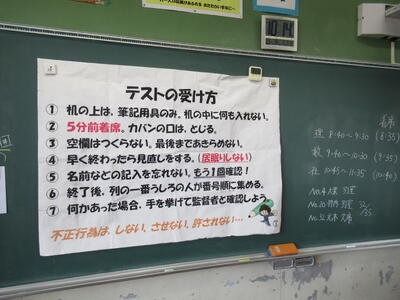 10:14
テストの受け方
① 机の上は、筆記用具のみ。机の中に何も入れない。
② 5分前着席。カバンの口は、とじる。
③ 空欄はつくらない。最後まであきらめない。
④ 早く終わったら見直しをする。(居眠りしない)
⑤ 名前などの記入を忘れない。もう1回確認!
⑥ 終了後、列の一番うしろの人が番号順に集める。
⑦ 何かあった場合、手を挙げて監督者と確認しよう。
不正行為は、しない、させない、許されない…
着席
8:40~9:30 (8:35)
9:40~10:30 (9:35)
10:45~11:35 (10:40)
No.4
No.20
32/35